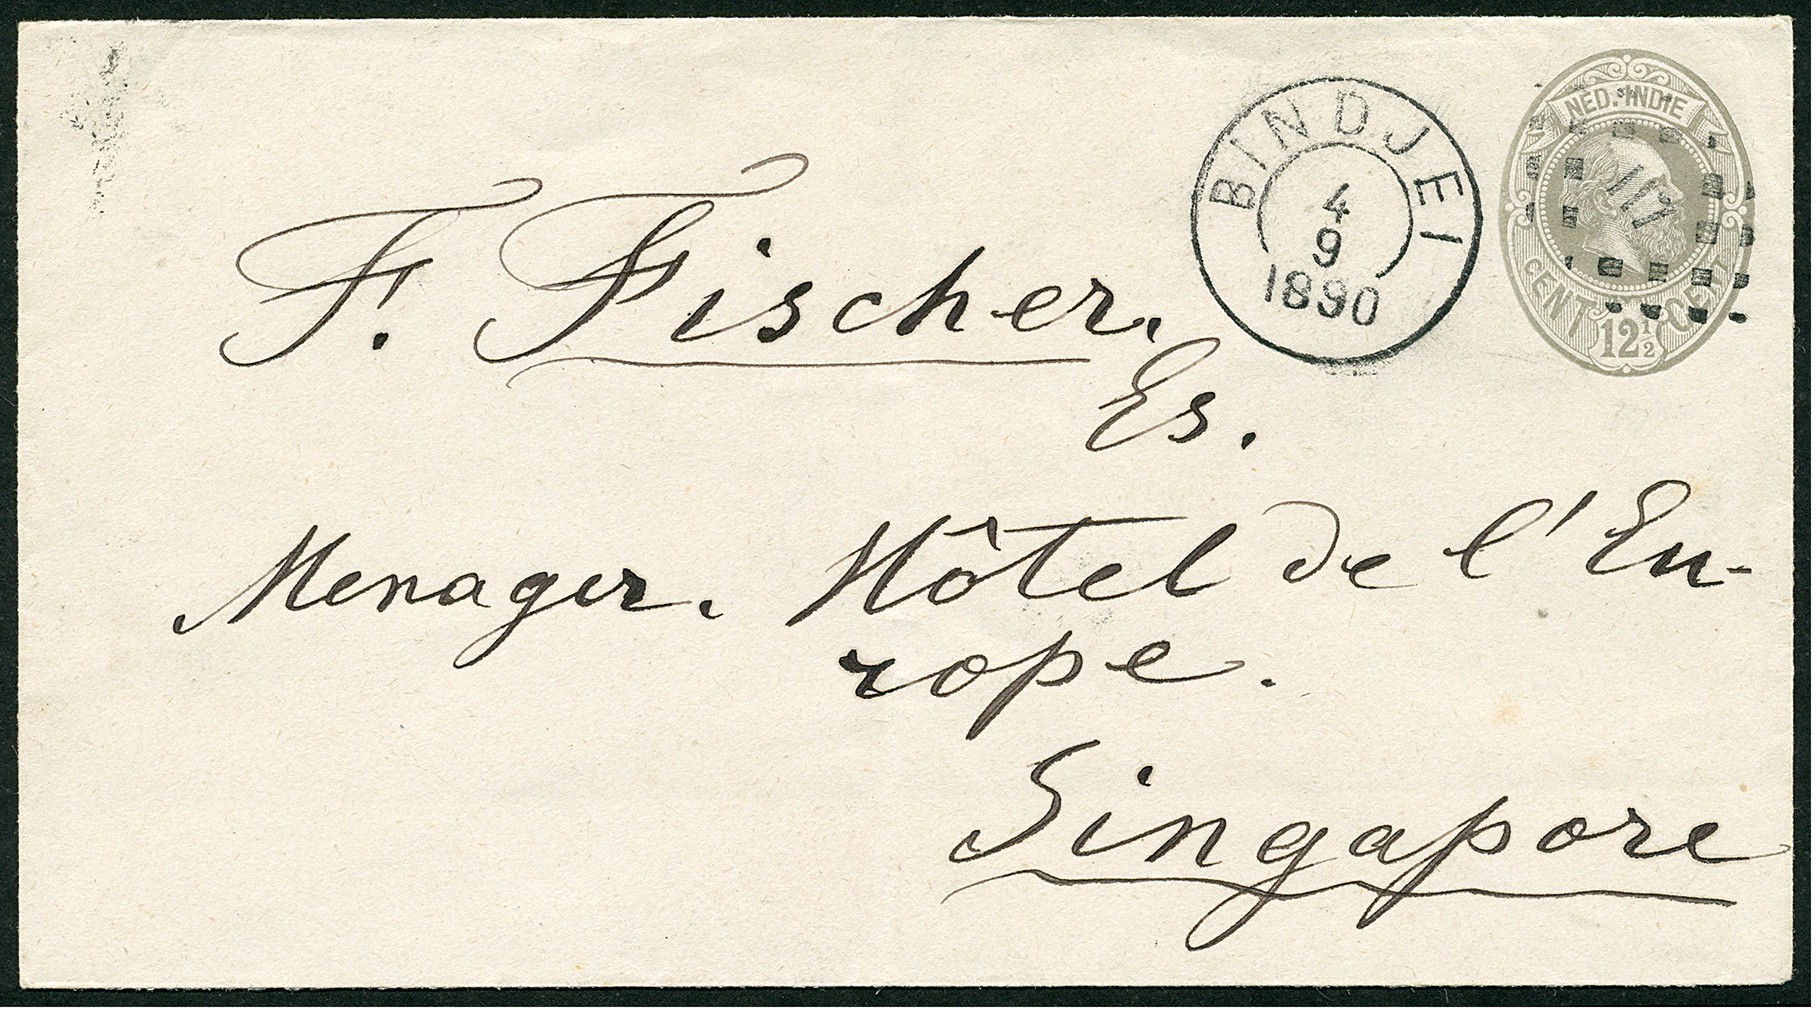 BINDJEI
4
9
1890
NED. INDIE
117
CENT POST
12 1/2
F. Fischer.
Es.
Menager. Hôtel de l'Eu-
rope.
Singapore